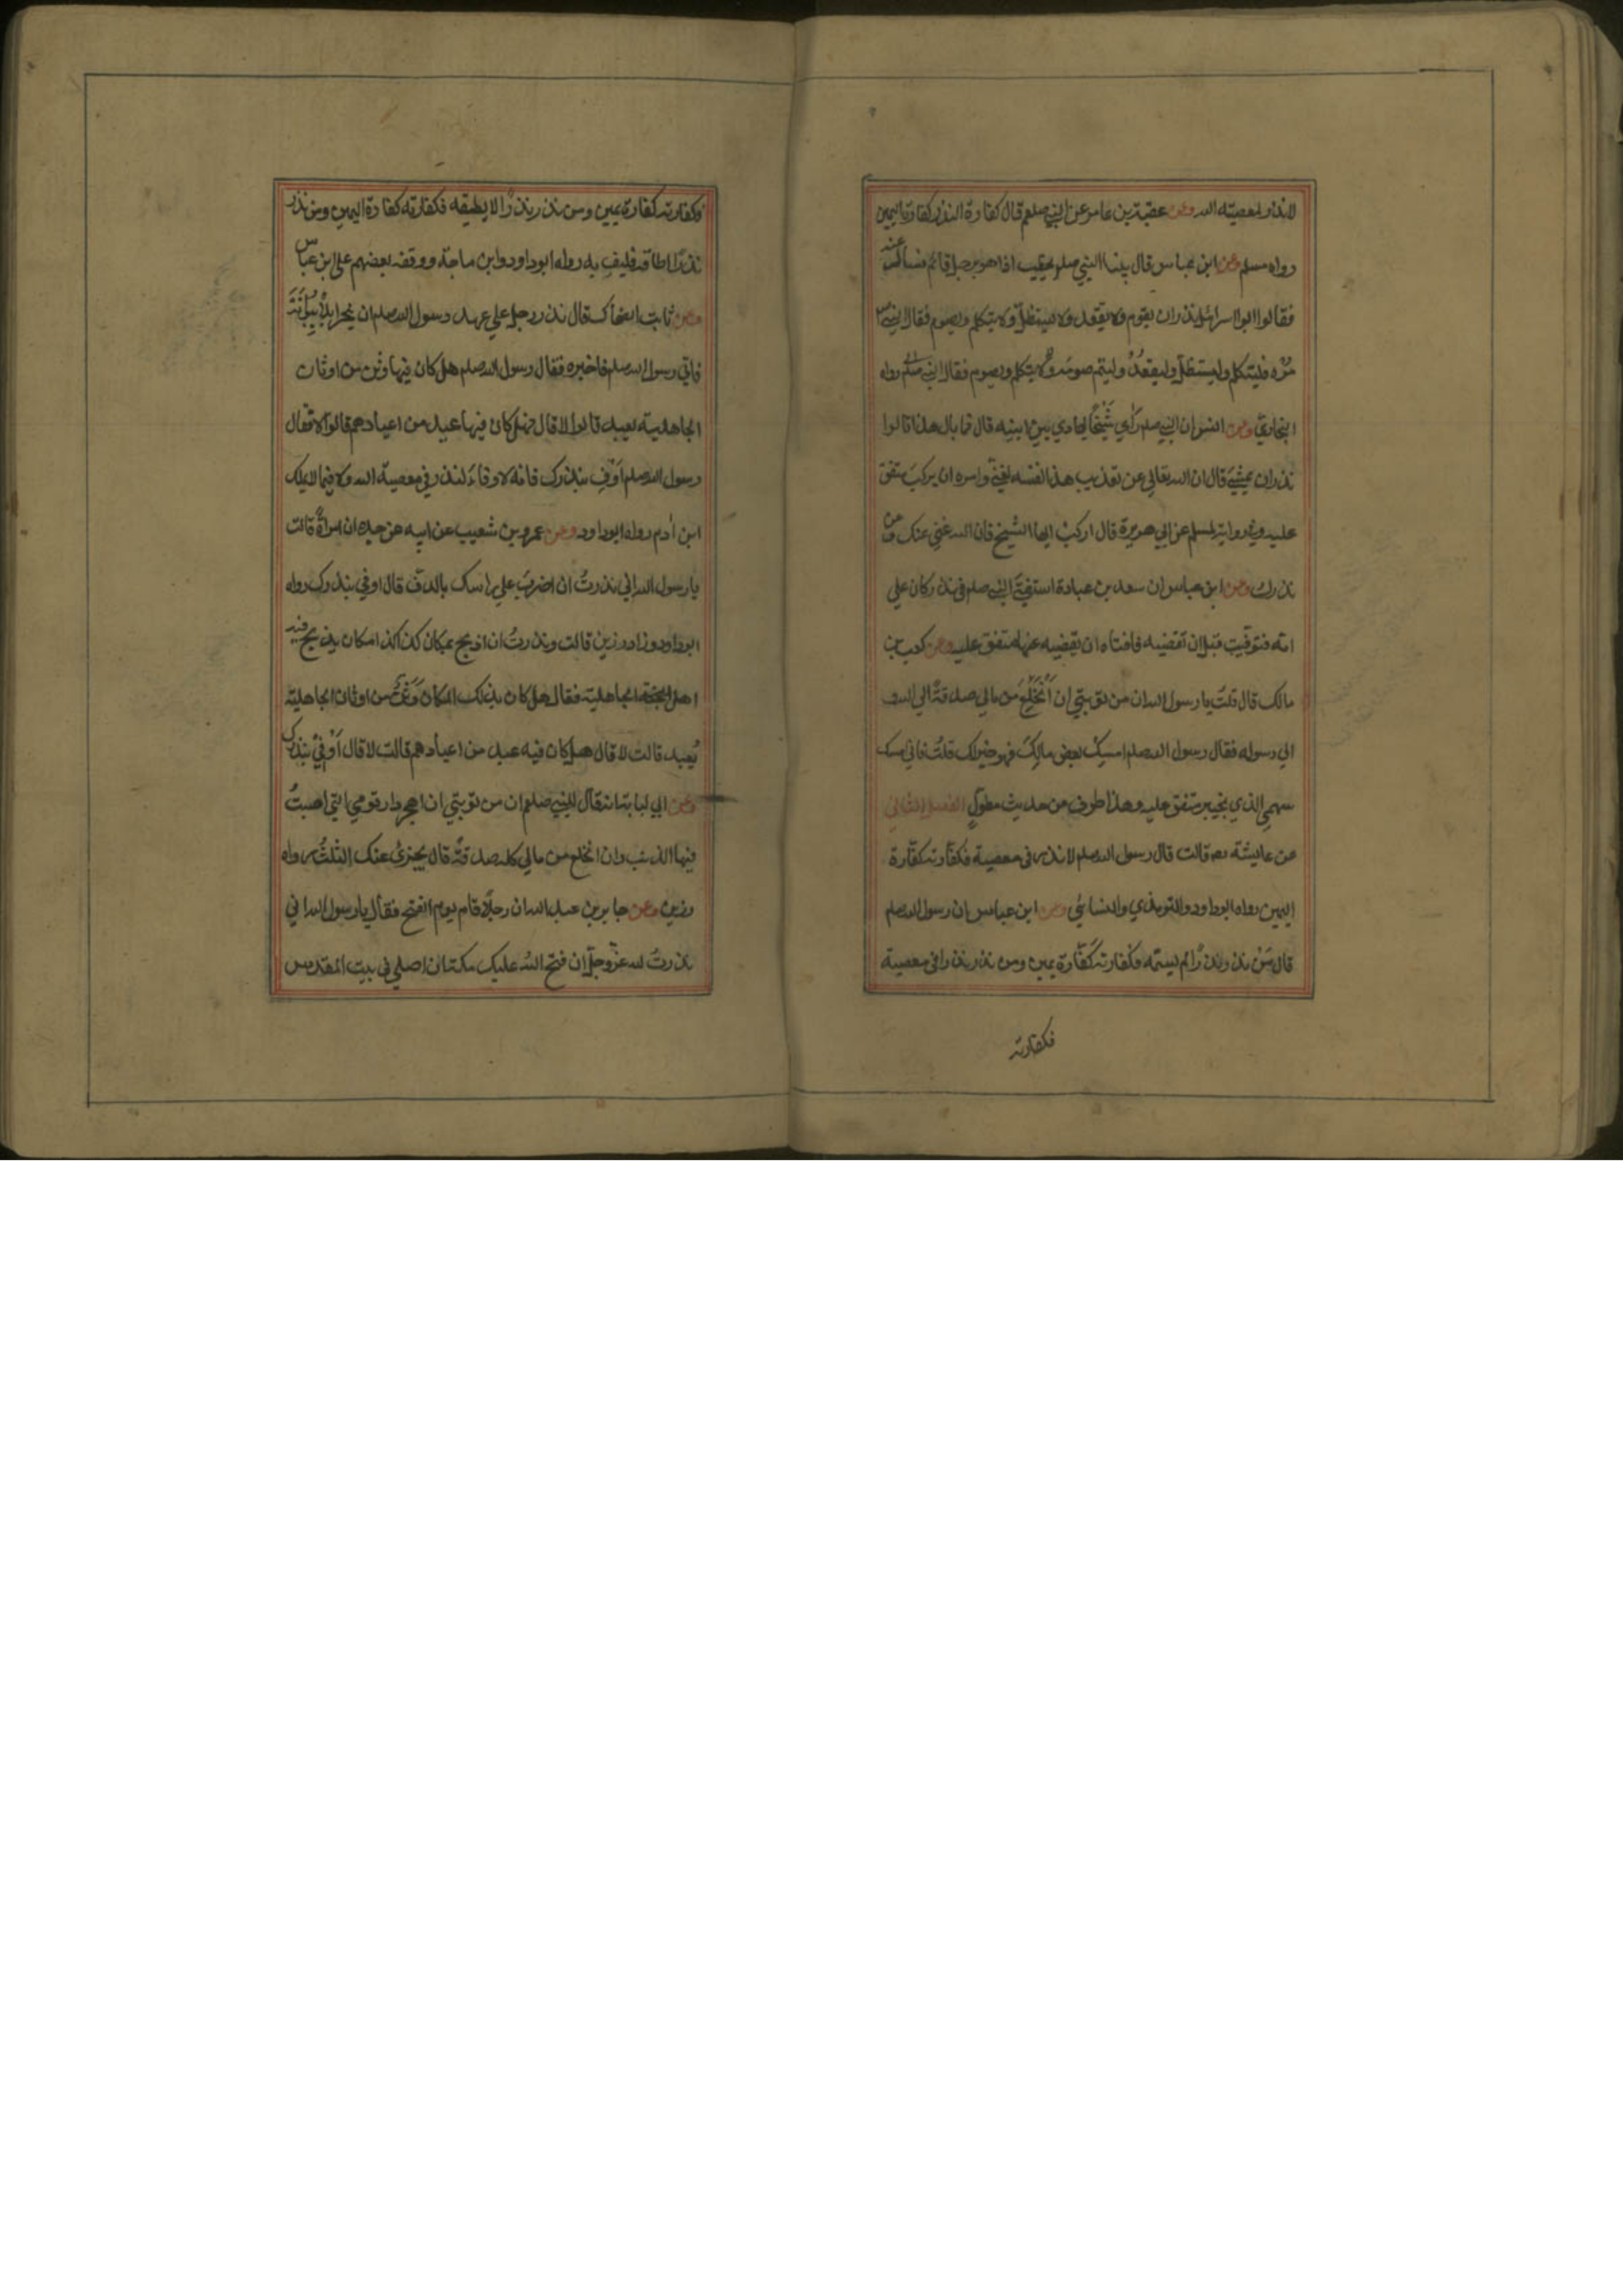 لا نذر لمعصية الله وعن عقبة بن عامر عن النبي صلعم قال كفارة النذر كفارة اليمين
رواه مسلم وعن ابن عباس قال بينا النبي صلم يخطب اذا هو برجل قائم فسأل عنه
فقالوا ابو اسرائيل نذر ان يقوم ولا يقعد ولا يستظل ولا يتكلم ويصوم فقال النبي
مُره فليتكلم وليستظل وليقعد وليتم صومه ولا يتكلم ويصوم فقال النبي صلم رواه
البخاري وعن انس ان النبي صلم رأي شَيْخًا يهادي بين ابنيه قال ما بال هذا قالوا
نذر ان يمشي قال ان الله تعالي عن تعذيب هذا نفسه لغني وامره ان يركب متفق
عليه وفي رواية لمسلم عن ابي هريرة قال اركب ايها الشيخ فان الله غني عنك وعن
نذرك وعن ابن عباس ان سعد بن عبادة استفتي النبي صلم في نذر كان علي
امه فتوفيت قبل ان تقضيه فافتاه ان يقضيه عنها متفق عليه وعن كعب بن
مالك قال قلت يا رسول الله ان من توبتي ان أنْخَلِعَ من مالي صدقةً الي الله و
الي رسوله فقال رسول الله صلم امسِكْ بعض مالِكَ فهو خير لك قلتُ فاني امسك
سهمي الذي بخيبر متفق عليه وهذا طرف من حديث مطولٍ الفصل الثاني
عن عايشة رض قالت قال رسول الله صلم لا نذر في معصية فكفارته كفّارة
اليمين رواه ابو داود والترمذي والنسائي وعن ابن عباس ان رسول الله صلم
قال مَنْ نذر نذرًا لم يسمّه فكفارته كَفّارة يمين ومن نذر نذرا في معصية
فكفارته
فكفارته كفارة يمين ومن نذر نذرًا لا يطيقه فكفارته كفارة اليمين ومن نذر
نذرًا اطاقه فليف به رواه ابو داود وابن ماجة ووقفه بعضهم علي ابن عباس
وعن ثابت الضحاك قال نذر رجل علي عهد رسول الله صلم ان ينحر ابلاً ببُوَانَةَ
فاتي رسول الله صلم فاخبره فقال رسول الله صلم هل كان فيها وثن من اوثان
الجاهلية يعبد قالوا لا قال فهل كان فيها عيد من اعيادهم قالوا لا فقال
رسول الله صلم اَوْفِ بنذرك فانه لا وفاءَ لنذر في معصية الله ولا فيما لا يملك
ابن اٰدم رواه ابو داود وعن عمرو بن شعيب عن ابيه عن جده ان امراةً قالت
يا رسول الله اني نذرتُ ان اضرب علي راسك بالدفّ قال اوفي بنذرك رواه
ابو داود وزاد رزين قالت ونذرتُ ان اذبح بمكان كذا كذا مكان يذبح فيه
اهل الجاهلية فقال هل كان بذلك المكان وَثَنٌ من اوثان الجاهلية
يُعبد قالت لا قال هل كان فيه عيد من اعيادهم قالت لا قال اَوْفِيْ بنذرك
وعن ابي لبابة انه قال للنبي صلعم ان من توبتي ان اهجر دار قومي التي اصبتُ
فيها الذنب وان انخلع من مالي كله صدقةً قال يجزئ عنك الثلثُ رواه
رزين وعن جابر بن عبد الله ان رجلًا قام يوم الفتح فقال يا رسول الله اني
نذرتُ لله عزّ وجلّ ان فتح اللهُ عليك مكة ان اصلي في بيت المقدس